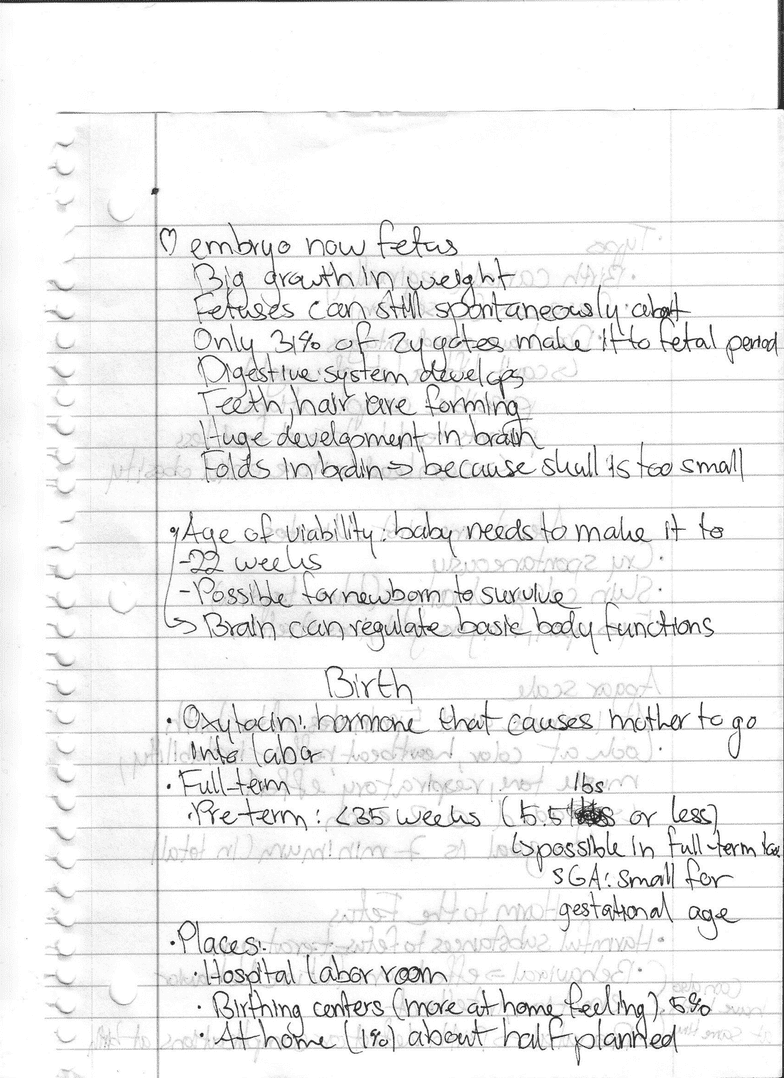 ♡ embryo now fetus
Big growth in weight
Fetuses can still spontaneously abort
Only 31% of zygotes make it to fetal period
Digestive system develops
Teeth, hair are forming
Huge development in brain
Folds in brain → because skull is too small
• Age of viability: baby needs to make it to
-22 weeks
-Possible for newborn to survive
↳ Brain can regulate basic body functions
Birth
• Oxytocin: hormone that causes mother to go
into labor
• Full-term
lbs
• Preterm: <35 weeks (5.5 or less)
↳ possible in full-term too
SGA: small for
gestational age
• Places:
• Hospital labor room
• Birthing centers (more at home feeling) 5%
• At home (1%) about half planned